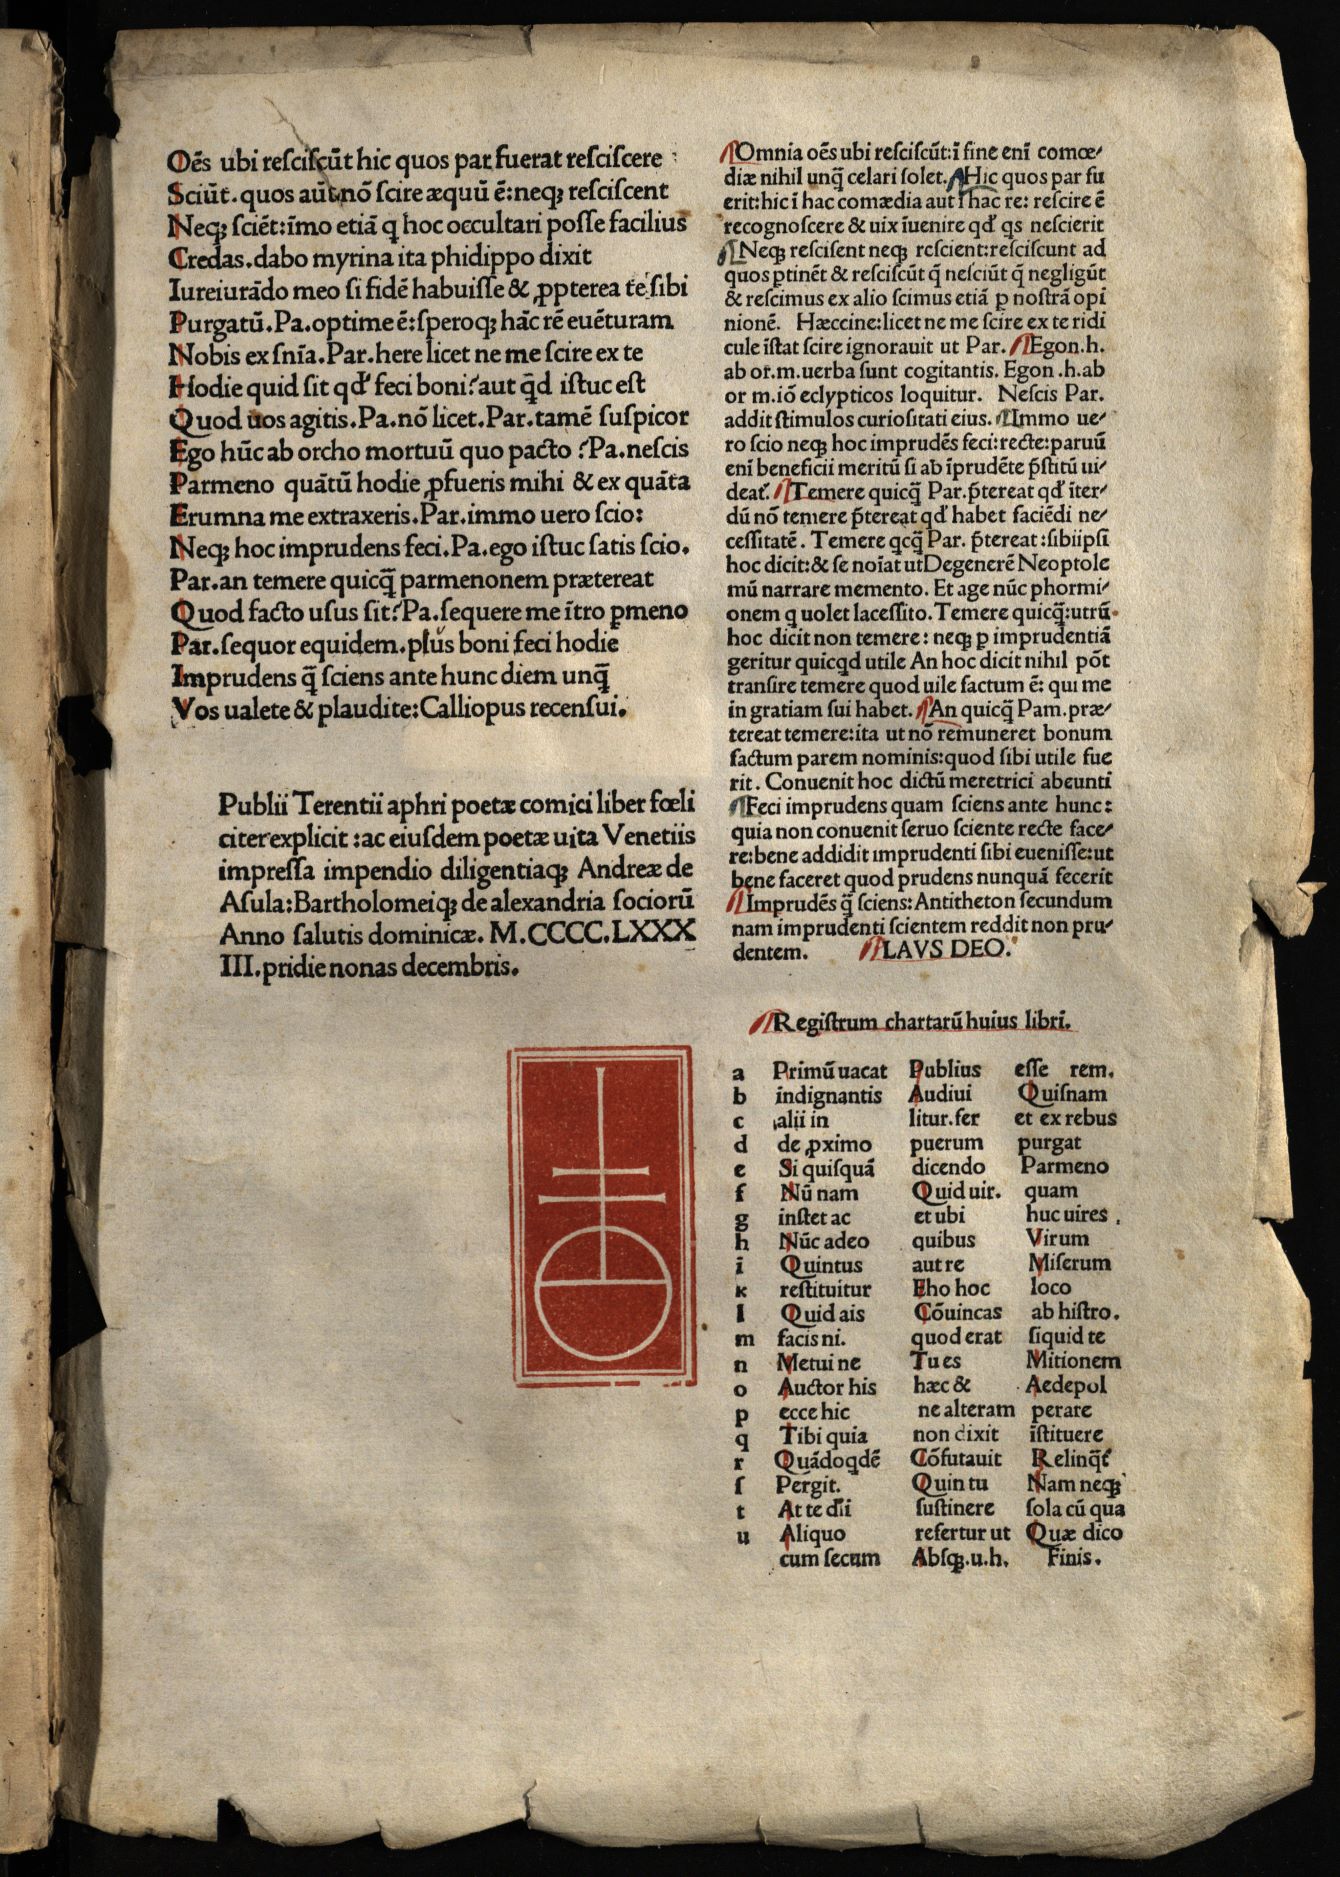 Oēs ubi reſciſcūt hic quos par fuerat reſciſcere
Sciūt. quos aūt nō ſcire æquū ē: neqꝫ reſciſcent
Neqꝫ ſciēt: īmo etiā q hoc occultari poſſe facilius
Credas. dabo myrina ita phidippo dixit
Iureiurādo meo ſi fidē habuiſſe & ꝓpterea te ſibi
Purgatū. Pa. optime ē: ſperoqꝫ hāc rē euēturam
Nobis ex ſnīa. Par. here licet ne me ſcire ex te
Hodie quid ſit qđ feci boni? aut qd̄ iſtuc eſt
Quod uos agitis. Pa. nō licet. Par. tamē ſuſpicor
Ego hūc ab orcho mortuū quo pacto? Pa. neſcis
Parmeno quātū hodie ꝓfueris mihi & ex quāta
Erumna me extraxeris. Par. immo uero ſcio:
Neqꝫ hoc imprudens feci. Pa. ego iſtuc ſatis ſcio.
Par. an temere quicq̄ parmenonem prætereat
Quod facto uſus ſit? Pa. ſequere me ītro ꝑmeno
Par. ſequor equidem. plus boni feci hodie
Imprudens q̄ ſciens ante hunc diem unq̄
Vos ualete & plaudite: Calliopus recenſui.
Publii Terentii aphri poetæ comici liber fœli
citer explicit: ac eiuſdem poetæ uita Venetiis
impreſſa impendio diligentiaqꝫ Andreæ de
Aſula: Bartholomeiqꝫ de alexandria ſociorū
Anno ſalutis dominicæ. M.CCCC.LXXX
III. pridie nonas decembris.
Omnia oēs ubi reſciſcūt: ī fine enī comœ⸗
diæ nihil unq̄ celari ſolet. Hic quos par fu
erit: hic ī hac comædia aut ī hac re: reſcire ē
recognoſcere & uix īuenire qđ qs neſcierit
Neqꝫ reſciſent neqꝫ reſcient: reſciſcunt ad
quos ꝑtinēt & reſciſcūt q̄ neſciūt q̄ negligūt
& reſcimus ex alio ſcimus etiā ꝑ noſtrā opi
nionē. Hæccine: licet ne me ſcire ex te ridi
cule īſtat ſcire ignorauit ut Par. Egon. h.
ab or. m. uerba ſunt cogitantis. Egon .h. ab
or m. iō eclypticos loquitur. Neſcis Par.
addit ſtimulos curioſitati eius. Immo ue⸗
ro ſcio neqꝫ hoc imprudēs feci: recte: paruū
enī beneficii meritū ſi ab īprudēte p̄ſtitū ui⸗
deat᷑. Temere quicq̄ Par. p̄tereat qđ īter⸗
dū nō temere p̄tereat qđ habet faciēdi ne⸗
ceſſitatē. Temere qcq̄ Par. p̄tereat: ſibiipſi
hoc dicit: & ſe noīat ut Degenerē Neoptole
mū narrare memento. Et age nūc phormi⸗
onem q uolet laceſſito. Temere quicq̄: utrū
hoc dicit non temere: neqꝫ ꝑ imprudentiā
geritur quicqd utile An hoc dicit nihil pōt
tranſire temere quod uile factum ē: qui me
in gratiam ſui habet. An quicq̄ Pam. præ⸗
tereat temere: ita ut nō remuneret bonum
factum parem nominis: quod ſibi utile fue
rit. Conuenit hoc dictū meretrici abeunti
Feci imprudens quam ſciens ante hunc:
quia non conuenit ſeruo ſciente recte face⸗
re: bene addidit imprudenti ſibi eueniſſe: ut
bene faceret quod prudens nunquā fecerit
Imprudēs q̄ ſciens: Antitheton ſecundum
nam imprudenti ſcientem reddit non pru⸗
dentem. LAVS DEO.
Regiſtrum chartarū huius libri.
a Primū uacat Publius eſſe rem.
b indignantis Audiui Quiſnam
c alii in litur. fer et ex rebus
d de ꝓximo puerum purgat
e Si quiſquā dicendo Parmeno
f Nū nam Quid uir. quam
g inſtet ac et ubi huc uires
h Nūc adeo quibus Virum
i Quintus aut re Miſerum
k reſtituitur Eho hoc loco
l Quid ais Cōuincas ab hiſtro.
m facis ni. quod erat ſiquid te
n Metui ne Tu es Mitionem
o Auctor his hæc & Aedepol
p ecce hic ne alteram perare
q Tibi quia non dixit īſtituere
r Quādoqdē Cōfutauit Relinq̄t
ſ Pergit. Quin tu Nam neqꝫ
t At te dii ſuſtinere ſola cū qua
u Aliquo refertur ut Quæ dico
cum ſecum Abſqꝫ. u. h. Finis.